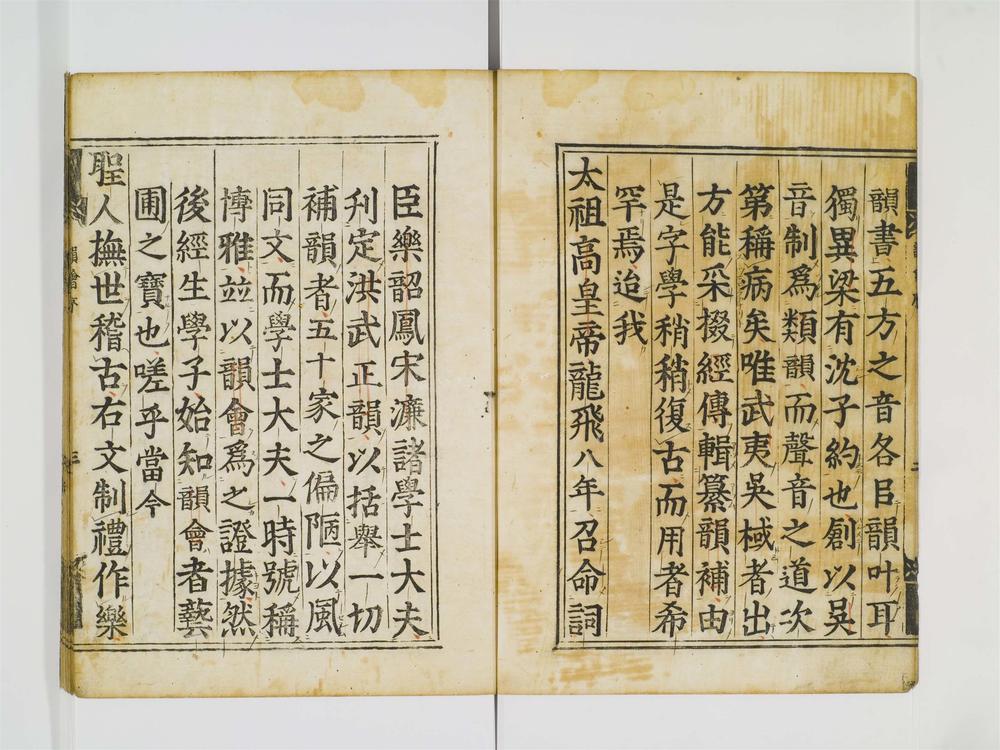 韻書五方之音各自韻叶耳
獨異梁有沈子約也創以吳
音制爲類韻而聲音之道次
第稱病矣唯武夷吳棫者出
方能采掇經傳輯纂韻補由
是字學稍稍復古而用者希
罕焉迨我
太祖高皇帝龍飛八年召命詞
臣樂韶鳳宋濂諸學士大夫
刋定洪武正韻以括舉一切
補韻者五十家之偏陋以風
同文而學士大夫一時號稱
博雅並以韻會爲之證據然
後經生學子始知韻會者藝
圃之寶也嗟乎當今
聖人撫世稽古右文制禮作樂
韻會序
三